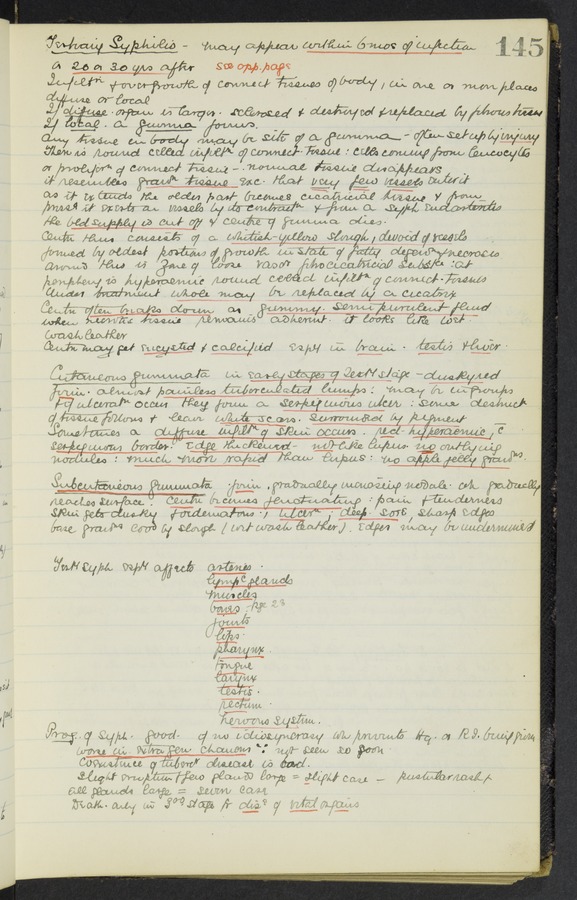 Tertiary Syphilis - may appear within 6 mos of infection
145
or 20 or 30 yrs after see opp. page
Infiltn & overgrowth of connect tissues of body, in one or more places
diffuse or local
If diffuse organ is larger. sclerosed & destroyed & replaced by fibrous tissue
If local a gumma forms.
Any tissue in body may be site of a gumma - often set up by injury
There is round celled infiltn of connect. tissue: cells coming from leucocytes
or prolifn of connect tissue - normal tissue disappears,
it resembles grann tissue exc. that very few vessels enter it
as it extends the older part becomes cicatricial tissue & from
press it exerts on vessels by its contractn & from a Syph Endarteritis
the bld supply is cut off & centre of gumma dies.
Centre thus consists of a whitish-yellow slough, devoid of vessels
formed by oldest portions of growth in state of fatty degenn & necrosis
around this is zone of loose vascr fibrocicatricial subste: at
periphery is hyperaemic round celled infiltn of connect. tissues
Under treatment whole may be replaced by a cicatrix
Centre often breaks down as gummy semi purulent fluid
when necrotic tissue remains adherent it looks like wet
wash leather
Centre may get encysted & calcified esply in brain. testis & liver.
Cutaneous gummata in early stages of tert stage - dusky red
firm. almost painless tuberculated lumps: may be in groups
& if ulceratn occurs they form a serpiginous ulcer: some destruct
of tissue follows & leave white scars. Surrounded by pigment
Sometimes a diffuse infiltn of skin occurs. red. hyperaemic, c̄
serpiginous border. Edge thickened. not like lupus no outlying
nodules: much more rapid than lupus: no apple jelly grans.
Subcutaneous gummata: firm, gradually increasing nodule. wh gradually
reaches surface Centre becomes fluctuating: pain & tenderness
Skin gets dusky & oedematous:, ulcern, deep sore, sharp edges
base grans covd by slough (wet wash leather). Edges may be undermined
Tert Syph esply affects arteries.
lympc glands
muscles
bones - pge 23
joints
lips.
pharynx.
tongue
larynx
testis.
rectum.
nervous system.
Prog. of Syph. good. if no idiosyncrasy wh prevents Hg. or K.I. being given
worse in extra gen chancres ∵ not seen so soon
Coexistence of tubercr disease is bad.
Slight eruption & few glands large = slight case - pustular rash &
all glands large = severe case
Death. only in 3rd stage fr dise of vital organs